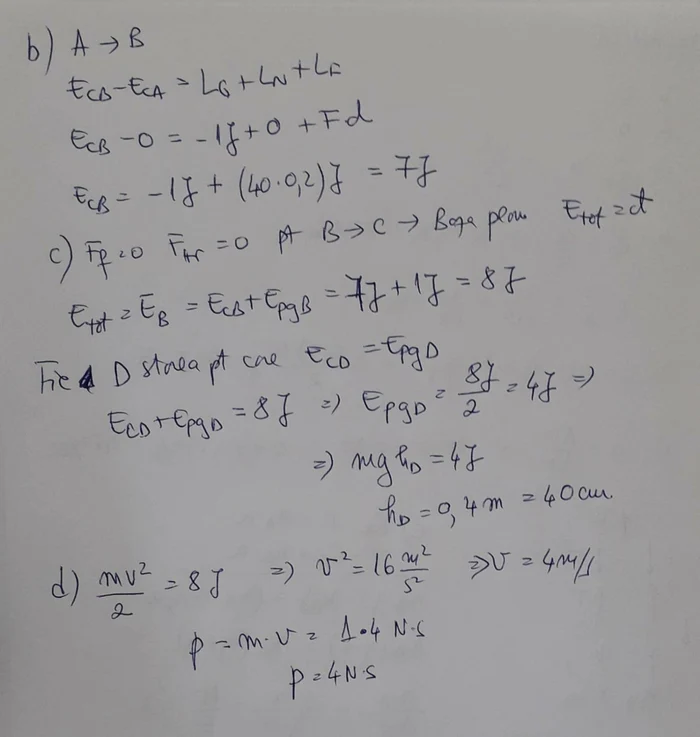 b) A → B
E_CB - E_CA = L_G + L_N + L_F
E_CB - 0 = -1J + 0 + Fd
E_CB = -1J + (40·0,2)J = 7J
c) F_f = 0 F_tr = 0 pt B → C → Baza plan E_tot = ct
E_tot = E_B = E_CB + E_pgB = 7J + 1J = 8J
Fie D starea pt care E_CD = E_pgD
E_CD + E_pgD = 8J ⇒ E_pgD = 8J/2 = 4J ⇒
⇒ mgh_D = 4J
h_D = 0,4m = 40cm
d) mv²/2 = 8J ⇒ v² = 16 m²/s² ⇒ v = 4m/s
p = m·v = 1·4 N·s
p = 4N·s